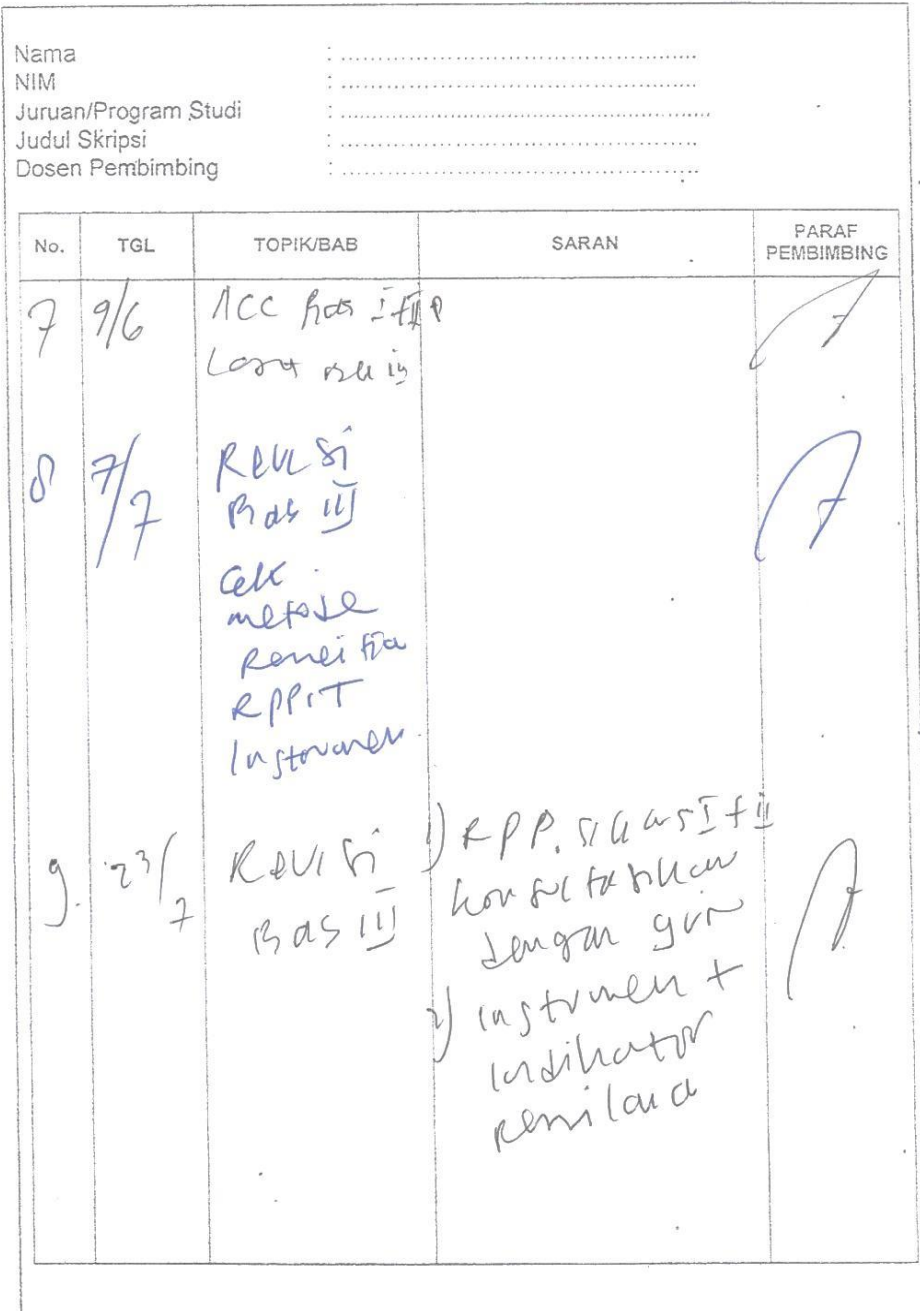 Nama : ..........................................
NIM : ..........................................
Juruan/Program Studi : ..........................................
Judul Skripsi : ..........................................
Dosen Pembimbing : ..........................................
No. TGL TOPIK/BAB SARAN PARAF PEMBIMBING
7 9/6 ACC Bab I + II
8 7/7 Revisi
Bab III
Cek
metode
RPP
Instrumen
9. 23/7 Revisi
Bab III
1) RPP. siklus I + II
konsultasikan
dengan guru
2) instrumen +
indikator